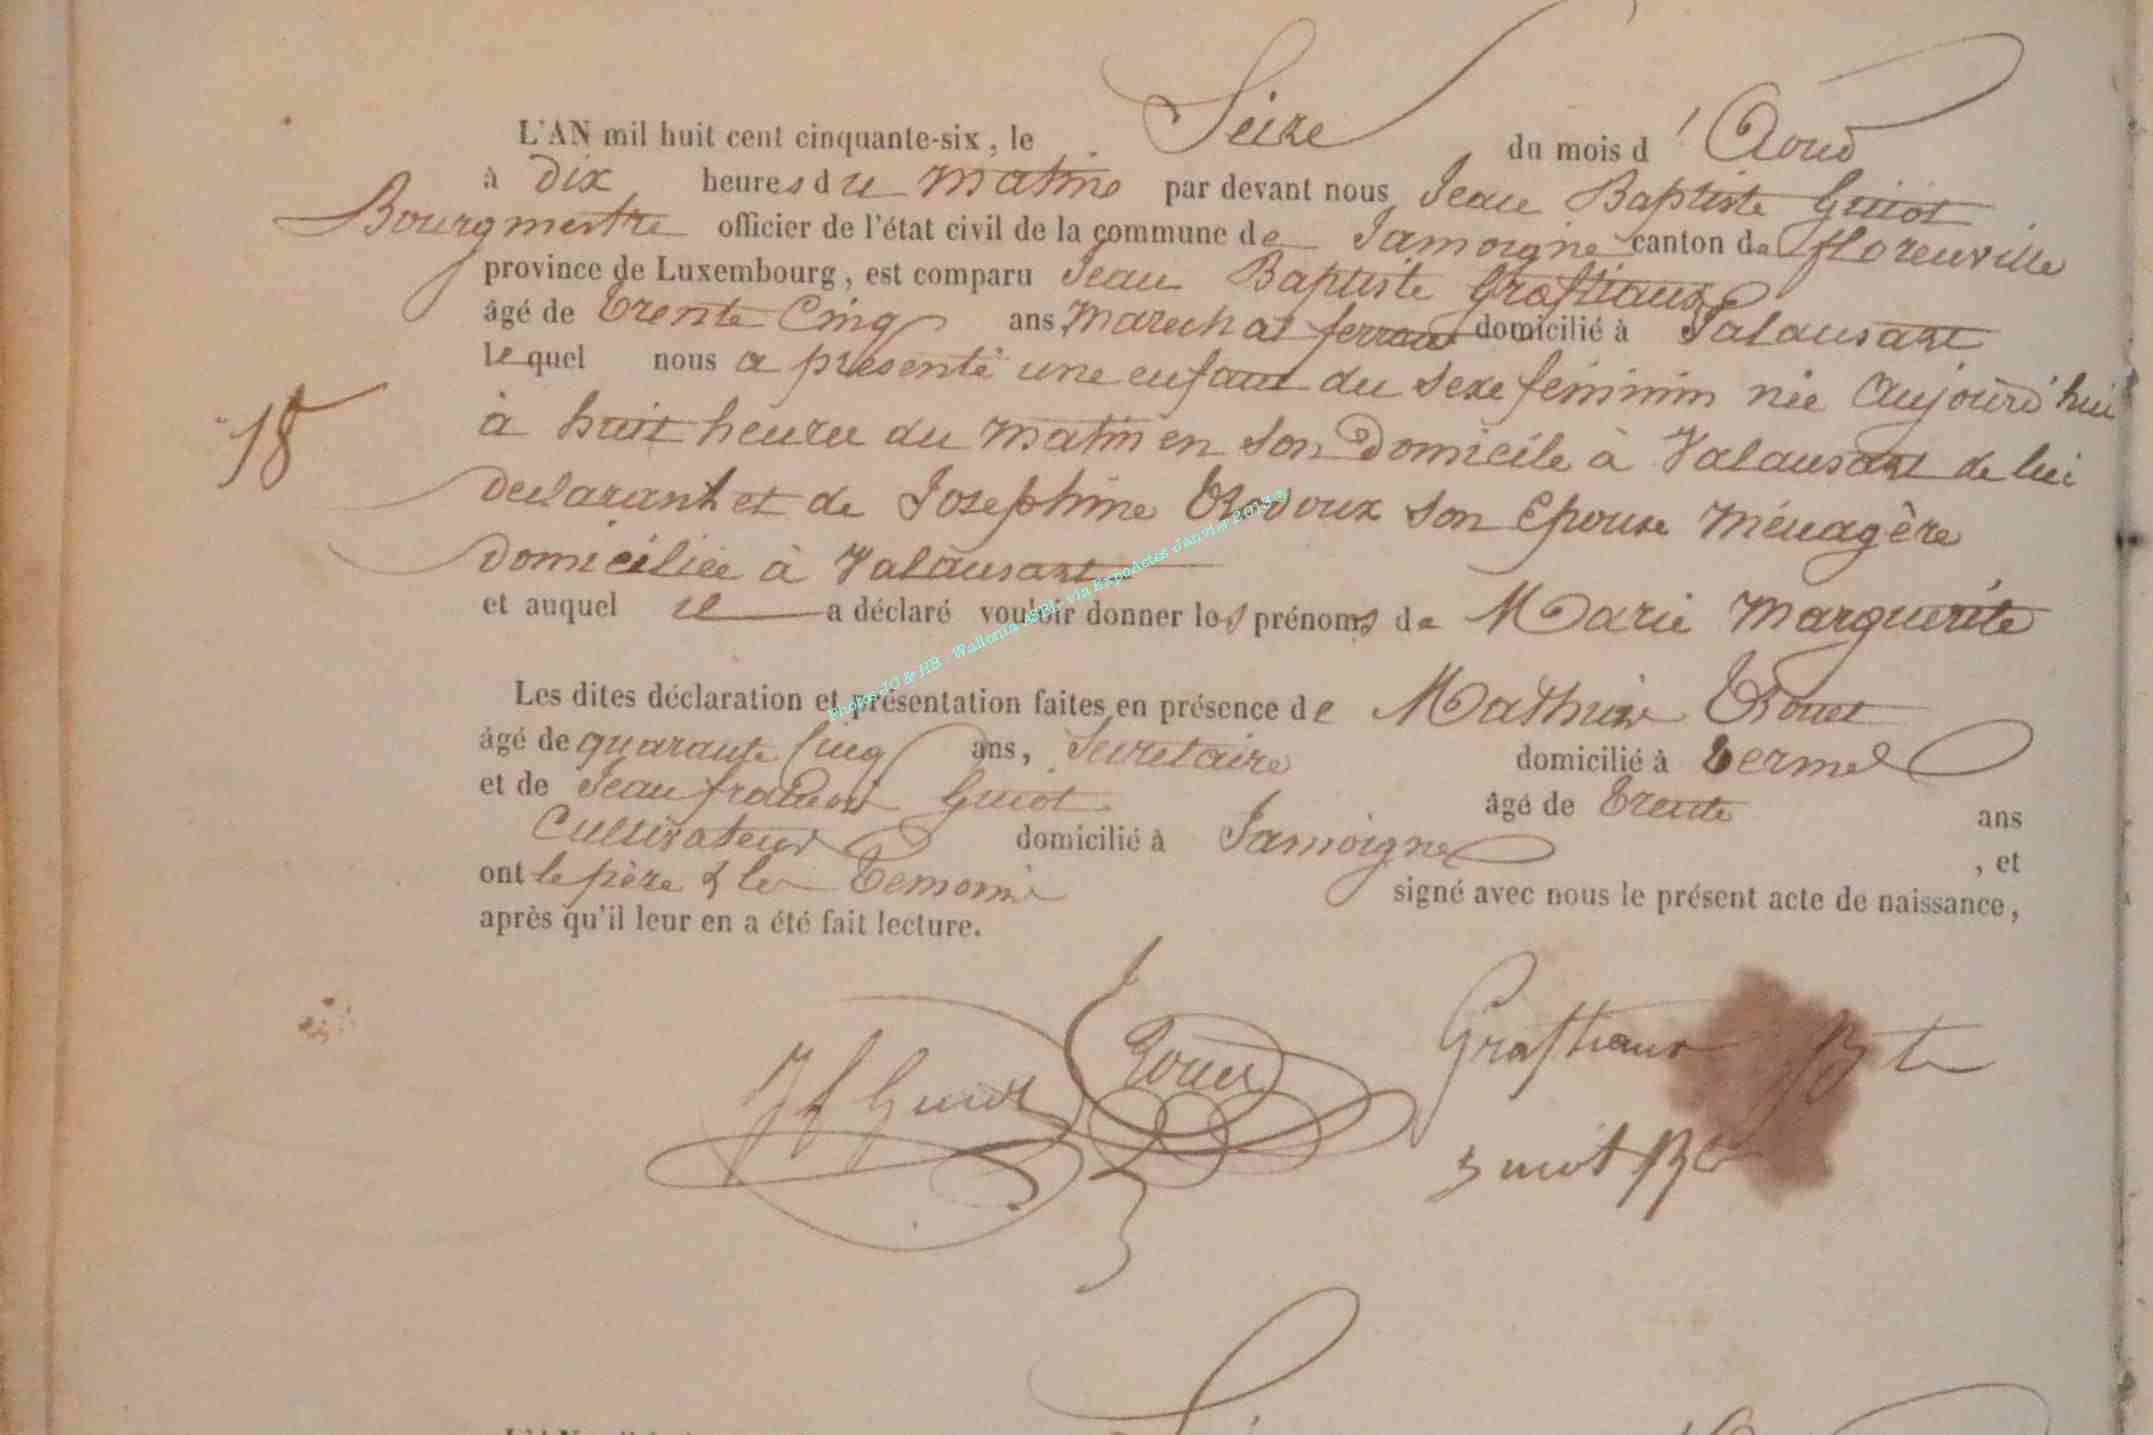 L'AN mil huit cent cinquante-six, le Seize du mois d'Aoud
à Dix heures du matin par devant nous Jean Baptiste Guiot
Bourgmestre officier de l'état civil de la commune de Jamoigne canton de florenville
province de Luxembourg, est comparu Jean Baptiste Graftiaux
âgé de Trente Cinq ans marechal ferrant domicilié à Valansart
lequel nous a présenté une enfant du sexe féminin née aujourd'hui
à huit heures du matin en son Domicile à Valansart de lui
18
declarant et de Josephine son Epouse Ménagère
Domiciliée à Valansart
et auquel il a déclaré vouloir donner les prénoms de Marie Marguerite
Photos JC & HB - Wallonia ASBL via ExpoActes Janvier
Les dites déclaration et présentation faites en présence de Mathieu
âgé de quarante Cinq ans, Secretaire domicilié à Termes
et de Jean françois Guiot âgé de Trente ans
Cultivateur domicilié à Jamoigne , et
ont le père & les Temoins signé avec nous le présent acte de naissance,
après qu'il leur en a été fait lecture.
Jf Guiot Graftiaux JBte